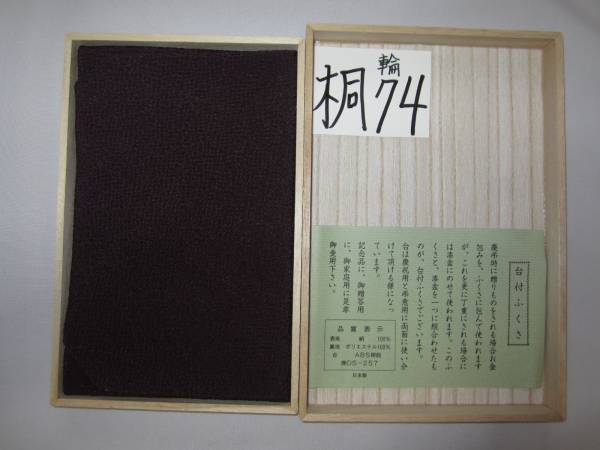 輪
桐74
台付ふくさ
慶弔時に贈りものをされる場合お金
包みを、ふくさに包んで使われます
が、これを更に丁重にされる場合に
は漆盆にのせて使われます。このふ
くさと、漆盆を一つに組合わせたも
のが、台付ふくさでございます。
台は慶祝用と弔意用に両面に使い分
けて頂ける様になっ
ています。
記念品に、御贈答用
に、御家庭用に是非
御愛用下さい。
品質表示
表地 絹 100%
裏地 ポリエステル100%
台 ABS樹脂
OS-257
日本製